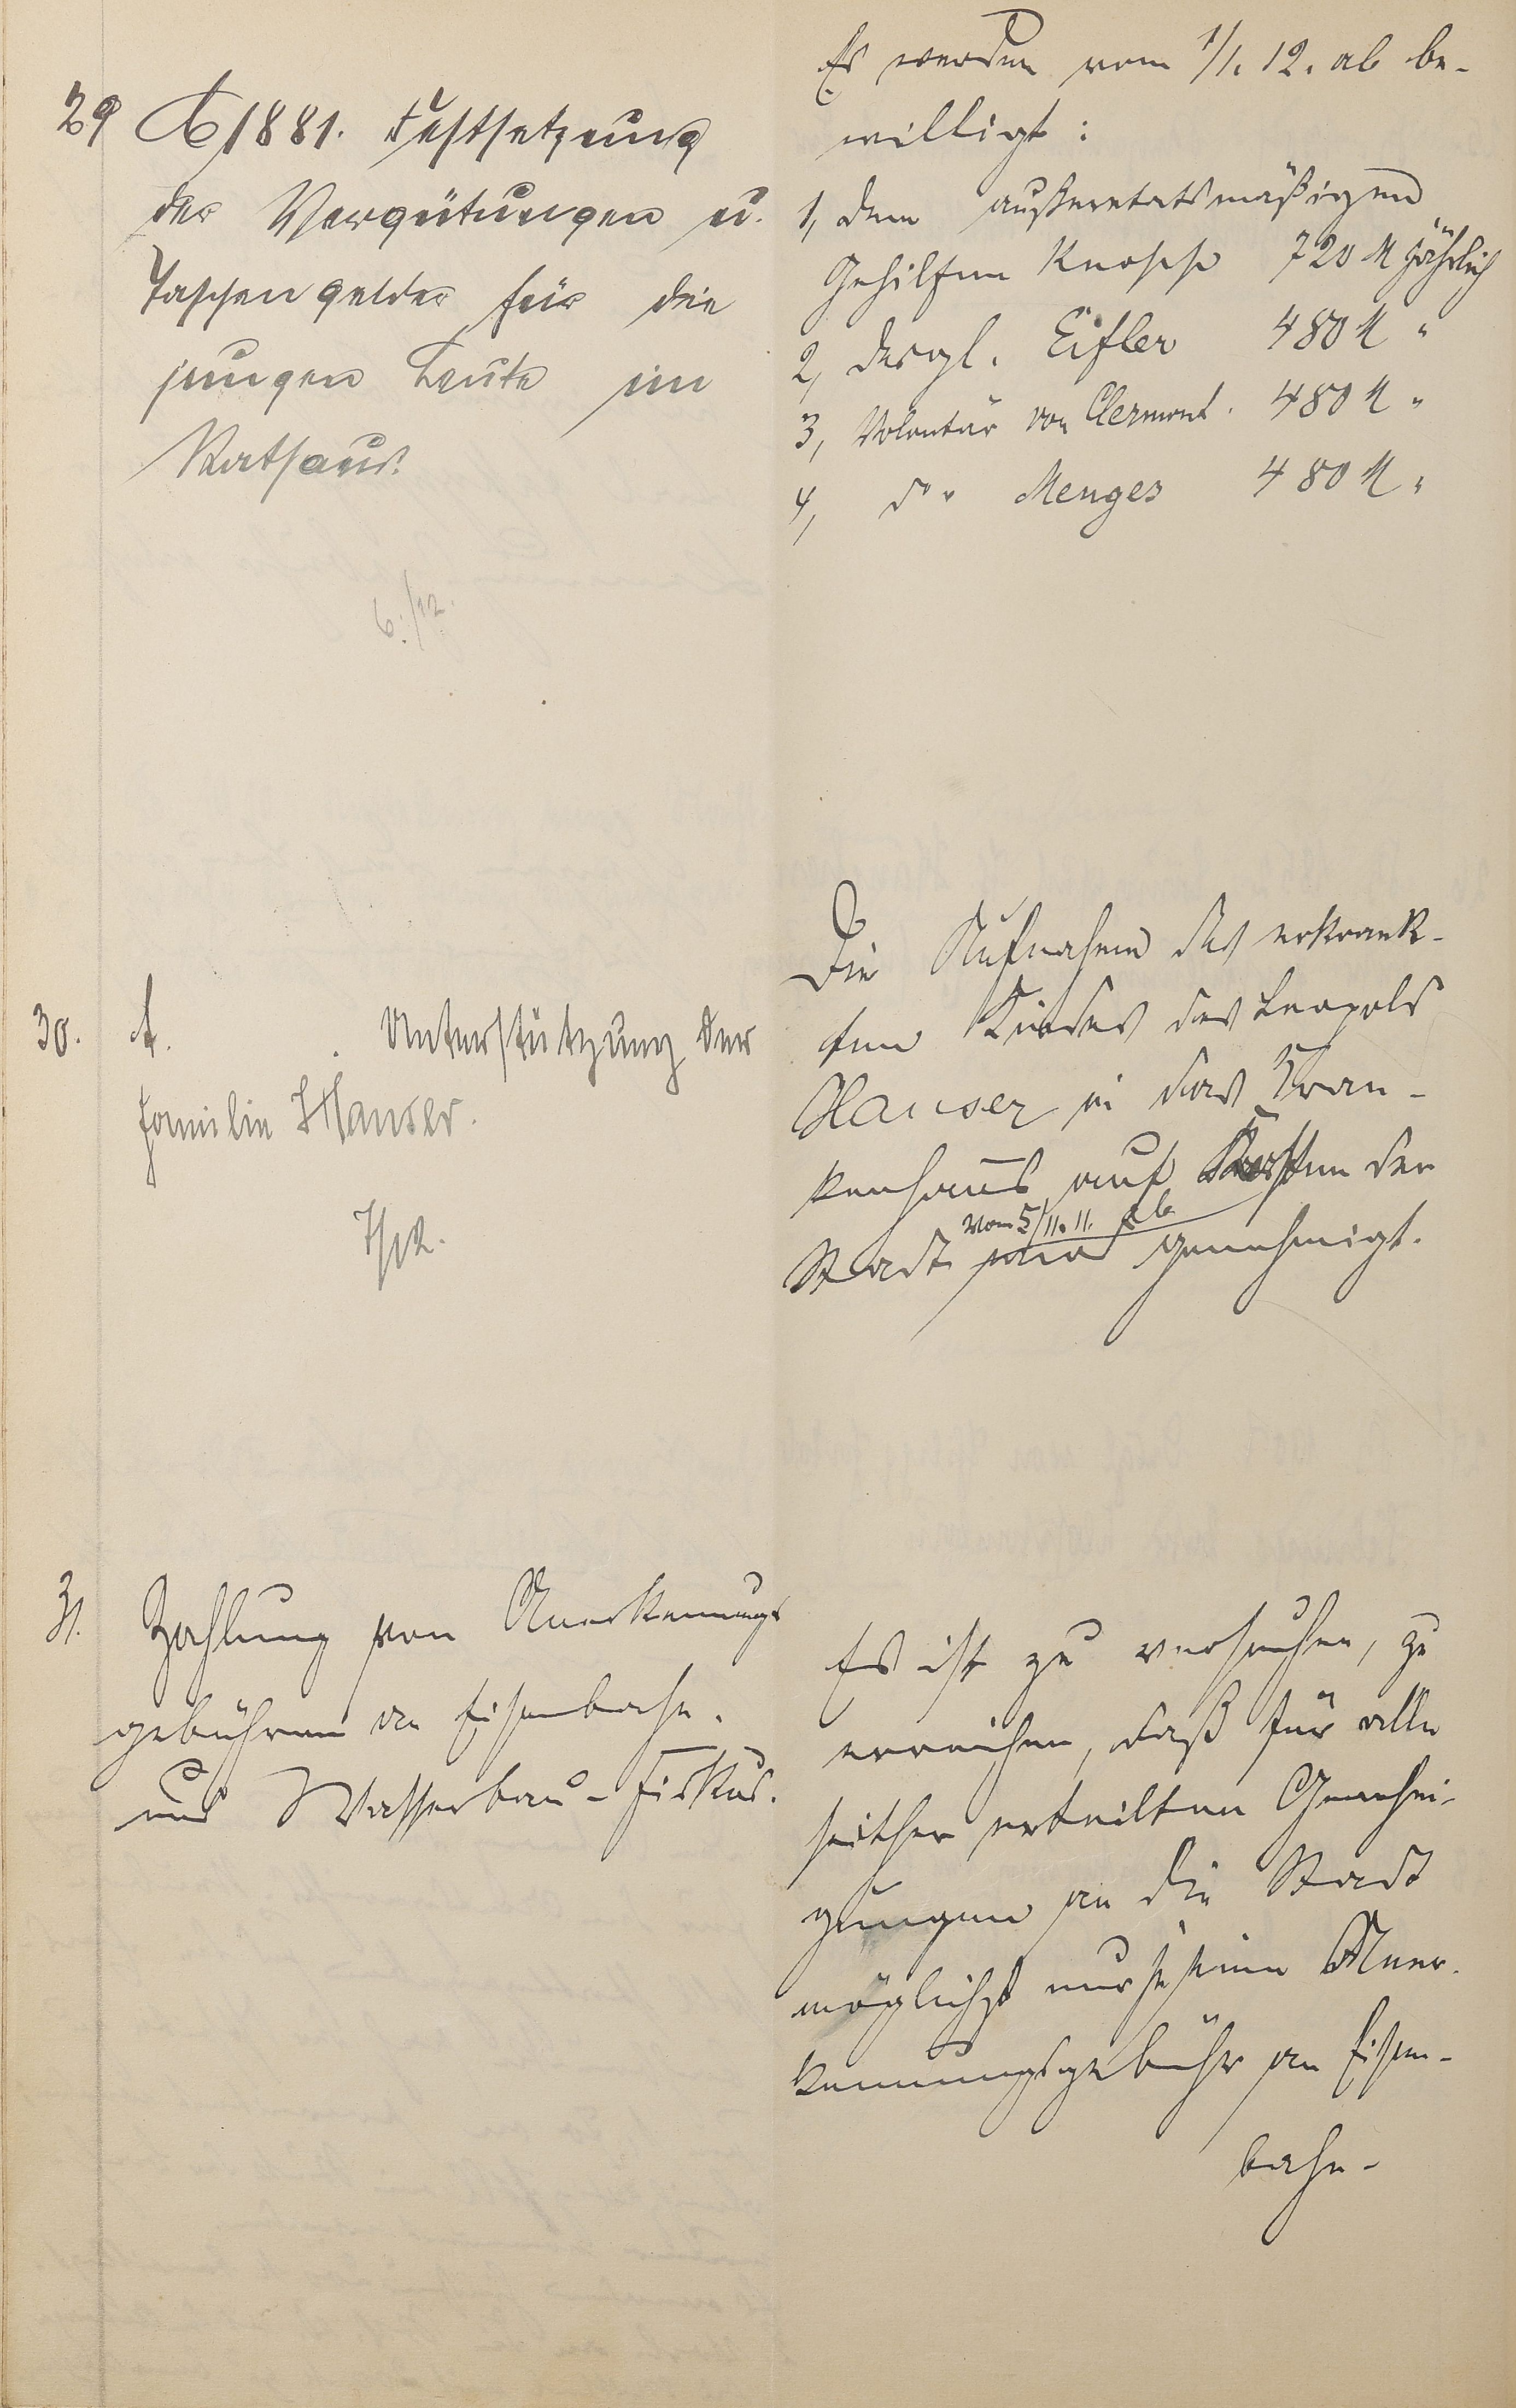 29 A 1881. Festsetzung
der Vergütungen u.
Taschengelder für die
jungen Leute im
Rathaus.
6./12.
Es werden vom 1/1. 12. ab be-
willigt:
1, dem außeretatsmäßigen
Gehilfen Knopp 720 M jährlich
2, desgl. Eifler 480 M "
3, Volontär von Clermont. 480 M "
4, do " Menges 480 M "
30. A. Unterstützung der
Familie Hauser.
7/12.
Die Aufnahme des erkrank-
ten Kindes des Leopold
Hauser in das Kran-
kenhaus auf Kosten der
vom 5/11. 11. ab
Stadt wird genehmigt.
31. Zahlung von Anerkennungs
gebühren an Eisenbahn.
und Wasserbau-Fiskus.
Es ist zu versuchen, zu
erreichen, daß für alle
seither erteilten Genehmi-
gungen an die Stadt
möglichst nur je eine Aner-
kennungsgebühr an Eisen-
bahn-